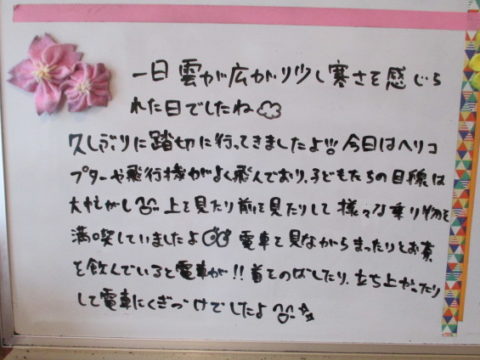 一日雲が広がり少し寒さを感じら
れた日でしたね
久しぶりに踏切に行ってきましたよ!! 今日はヘリコ
プターや飛行機がよく飛んでおり、子どもたちの目線は
大忙がし 上を見たり前を見たりして様々な乗り物を
満喫していましたよ 電車を見ながらまったりとお茶
を飲んでいると電車が!! 首をのばしたり、立ち上がったり
して電車にくぎづけでしたよ